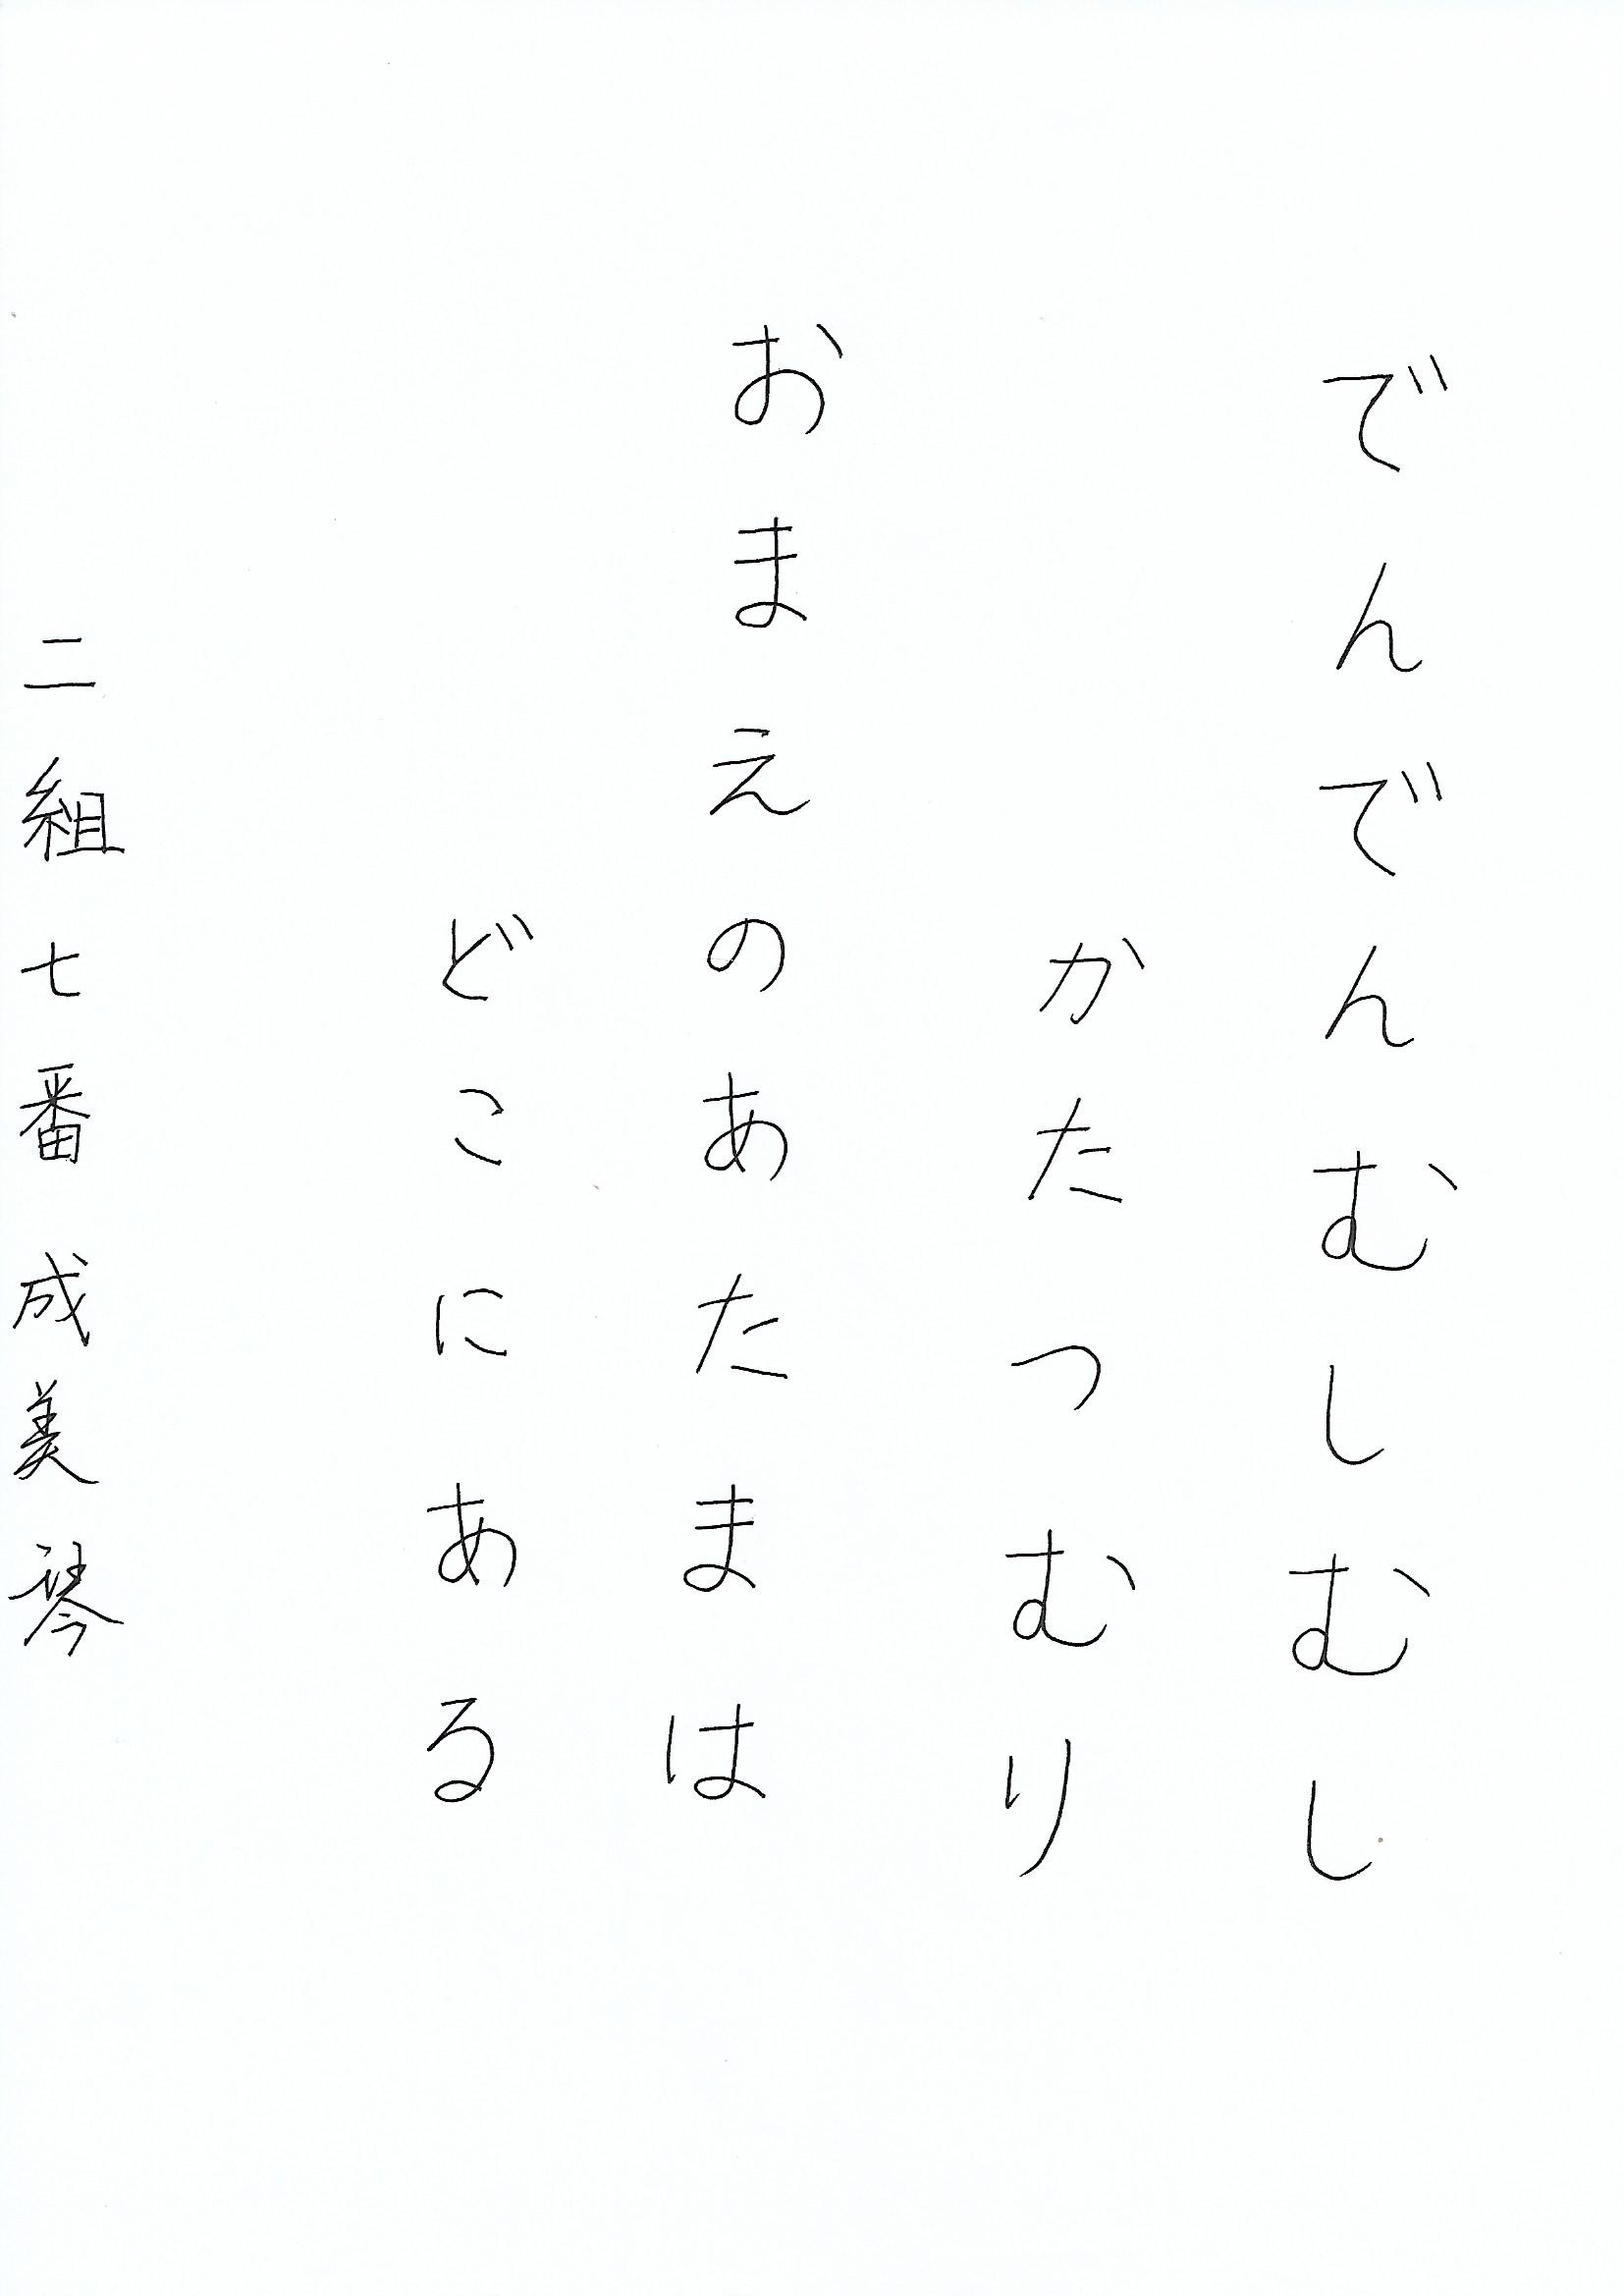 でんでんむしむし
かたつむり
おまえのあたまは
どこにある
二組七番成美琴